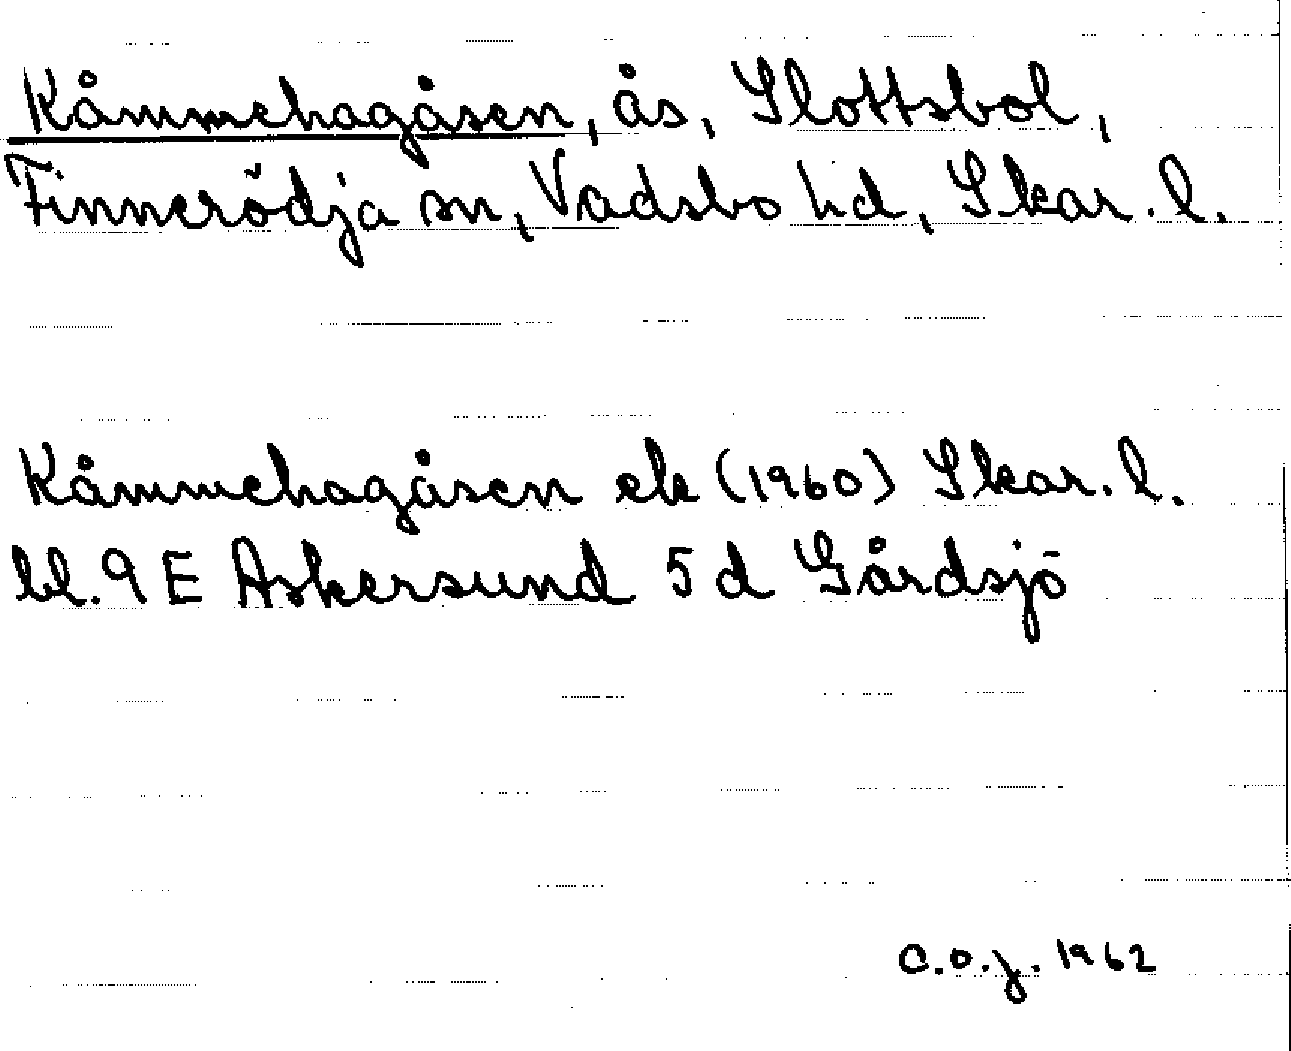 Kåmmehagåsen, ås, Slottsbol,
Finnerödja sn, Vadsbo hd, Skar. l.
Kåmmehagåsen ek (1960) Skar. l.
bl. 9 E Askersund 5 d Gårdsjö
C.O.J. 1962